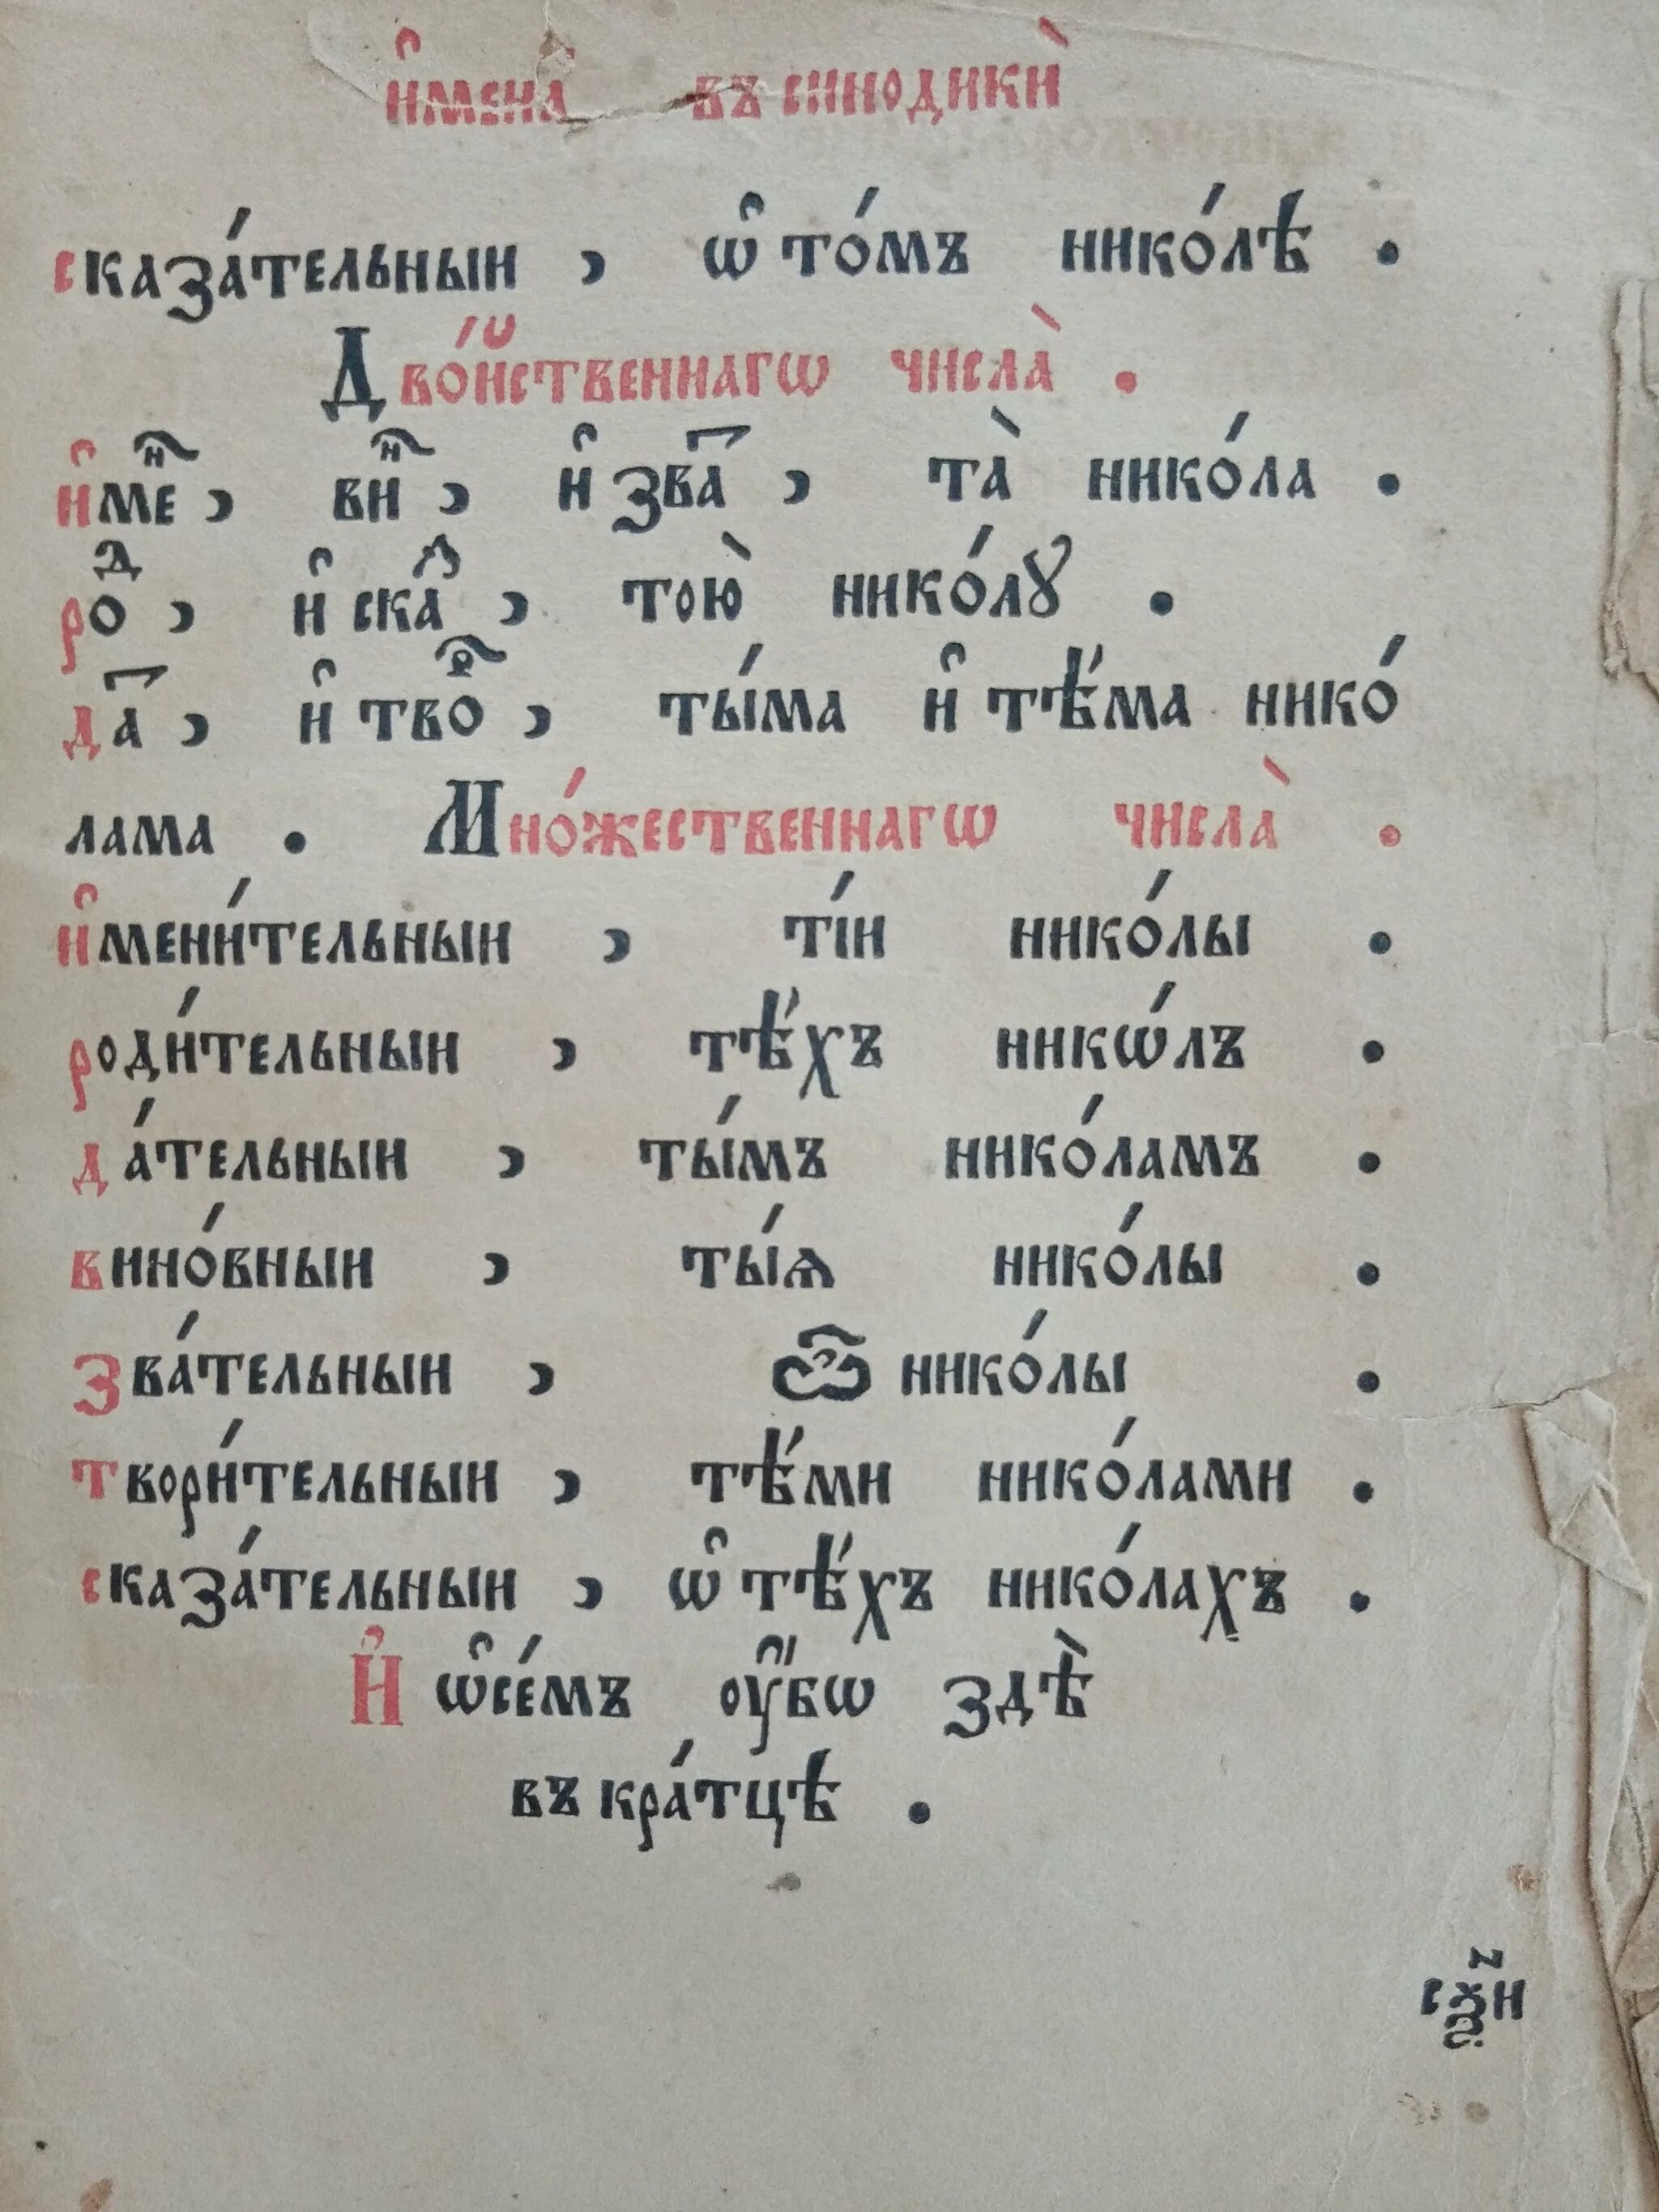 и҆мена̀ въ синодикѝ
сказа́тельныи , ѡ҆ то́мъ нико́лѣ .
Дво́йственнагѡ числа̀ .
и҆меⷩ҇ , виⷩ҇ , и҆ зва̀ , та̀ нико́ла .
роⷣ , и҆ скаⷥ , тою̀ нико́лꙋ .
да̀ , и҆ твоⷬ҇ , ты́ма и҆ тѣ́ма нико́
лама . Мно́жественнагѡ числа̀ .
и҆мени́тельныи , ті́и нико́лы .
роди́тельныи , тѣ́хъ никѡ́лъ .
да́тельныи , ты́мъ нико́ламъ .
вино́вныи , ты́ѧ нико́лы .
зва́тельныи , ѽ нико́лы .
твори́тельныи , тѣ́ми нико́лами .
сказа́тельныи , ѡ҆ тѣ́хъ нико́лахъ .
И҆ ѡ҆се́мъ оу҆́бѡ здѣ̀
въ кра́тцѣ .